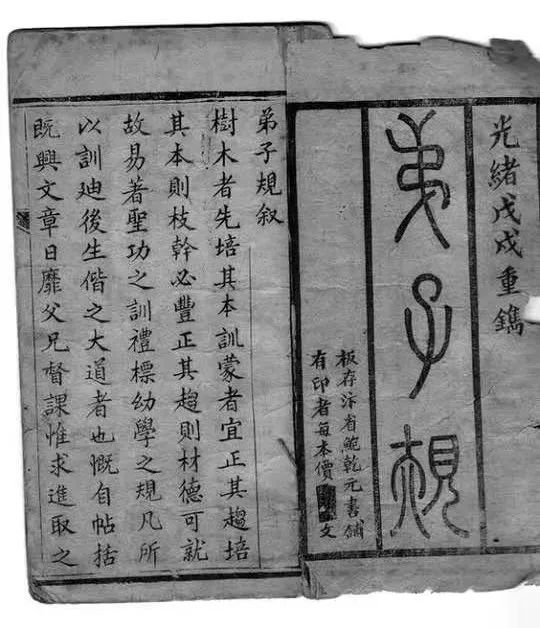 光緒戊戌重鐫
弟子規
板存汴省鮑乾元書舖
有印者每本價文
弟子規叙
樹木者先培其本訓蒙者宜正其趨培
其本則枝幹必豐正其趨則材德可就
故易著聖功之訓禮標幼學之規凡所
以訓廸後生偕之大道者也慨自帖括
既興文章日靡父兄督課惟求進取之